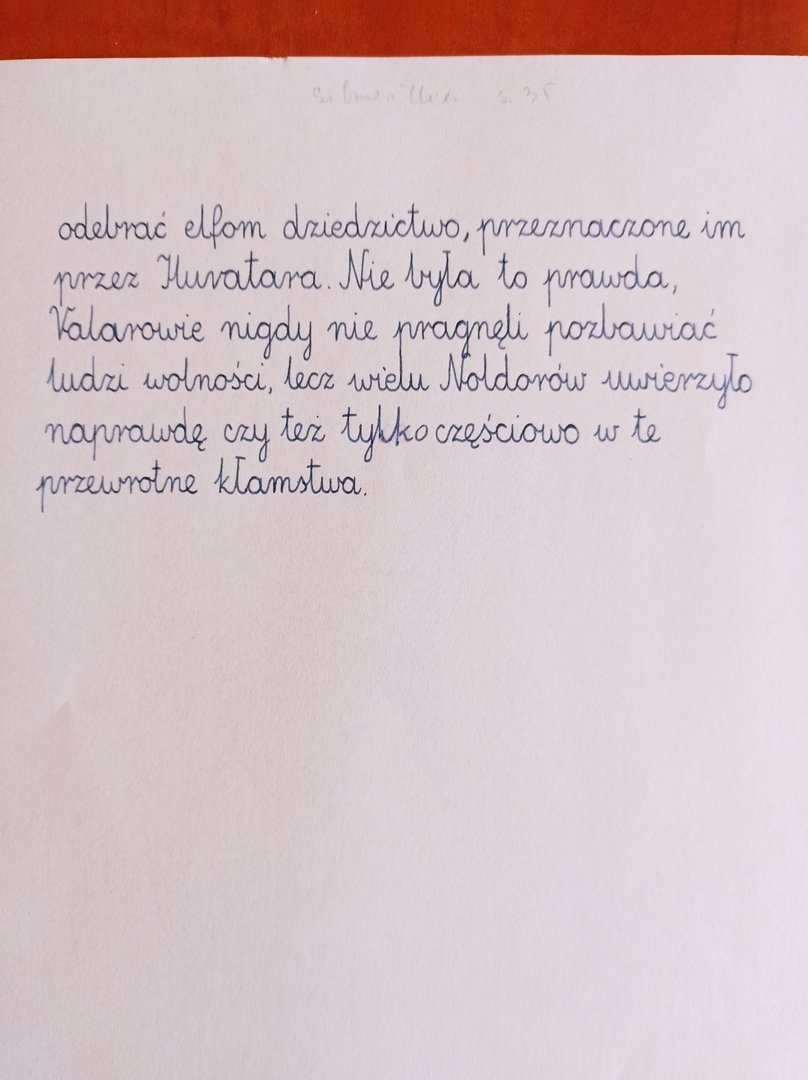 Silmarillion s. 35
odebrać elfom dziedzictwo, przeznaczone im
przez Iluvatara. Nie była to prawda,
Valarowie nigdy nie pragnęli pozbawiać
ludzi wolności, lecz wielu Noldorów uwierzyło
naprawdę czy też tylko częściowo w te
przewrotne kłamstwa.